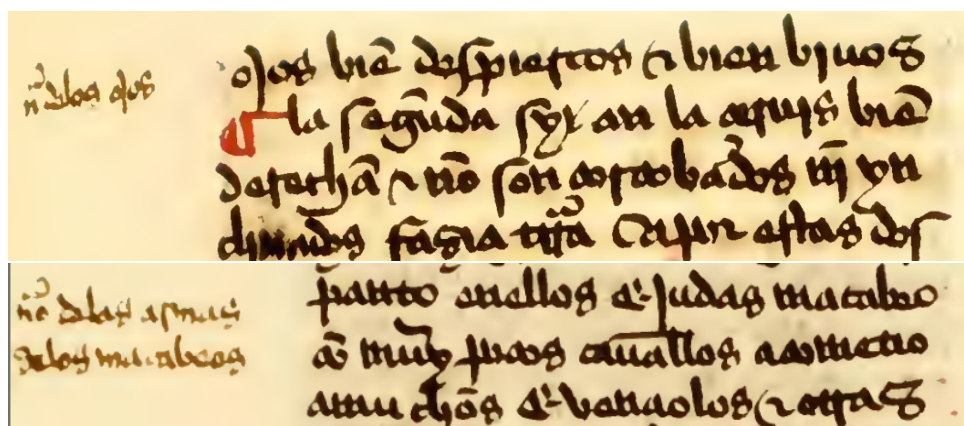 nõ delos ojos
ojos biẽ despiertos & bien biuos
la segũda sy an la ceruis biẽ
derechã & nõ son corcobados nĩ yn
clinados fazia trra Ca por estas dos
nõ delas armas
delos macabeos
panto enellos E Judas macabeo
cõ muy pocos cauallos acometio
amuchos E venciolos & otras